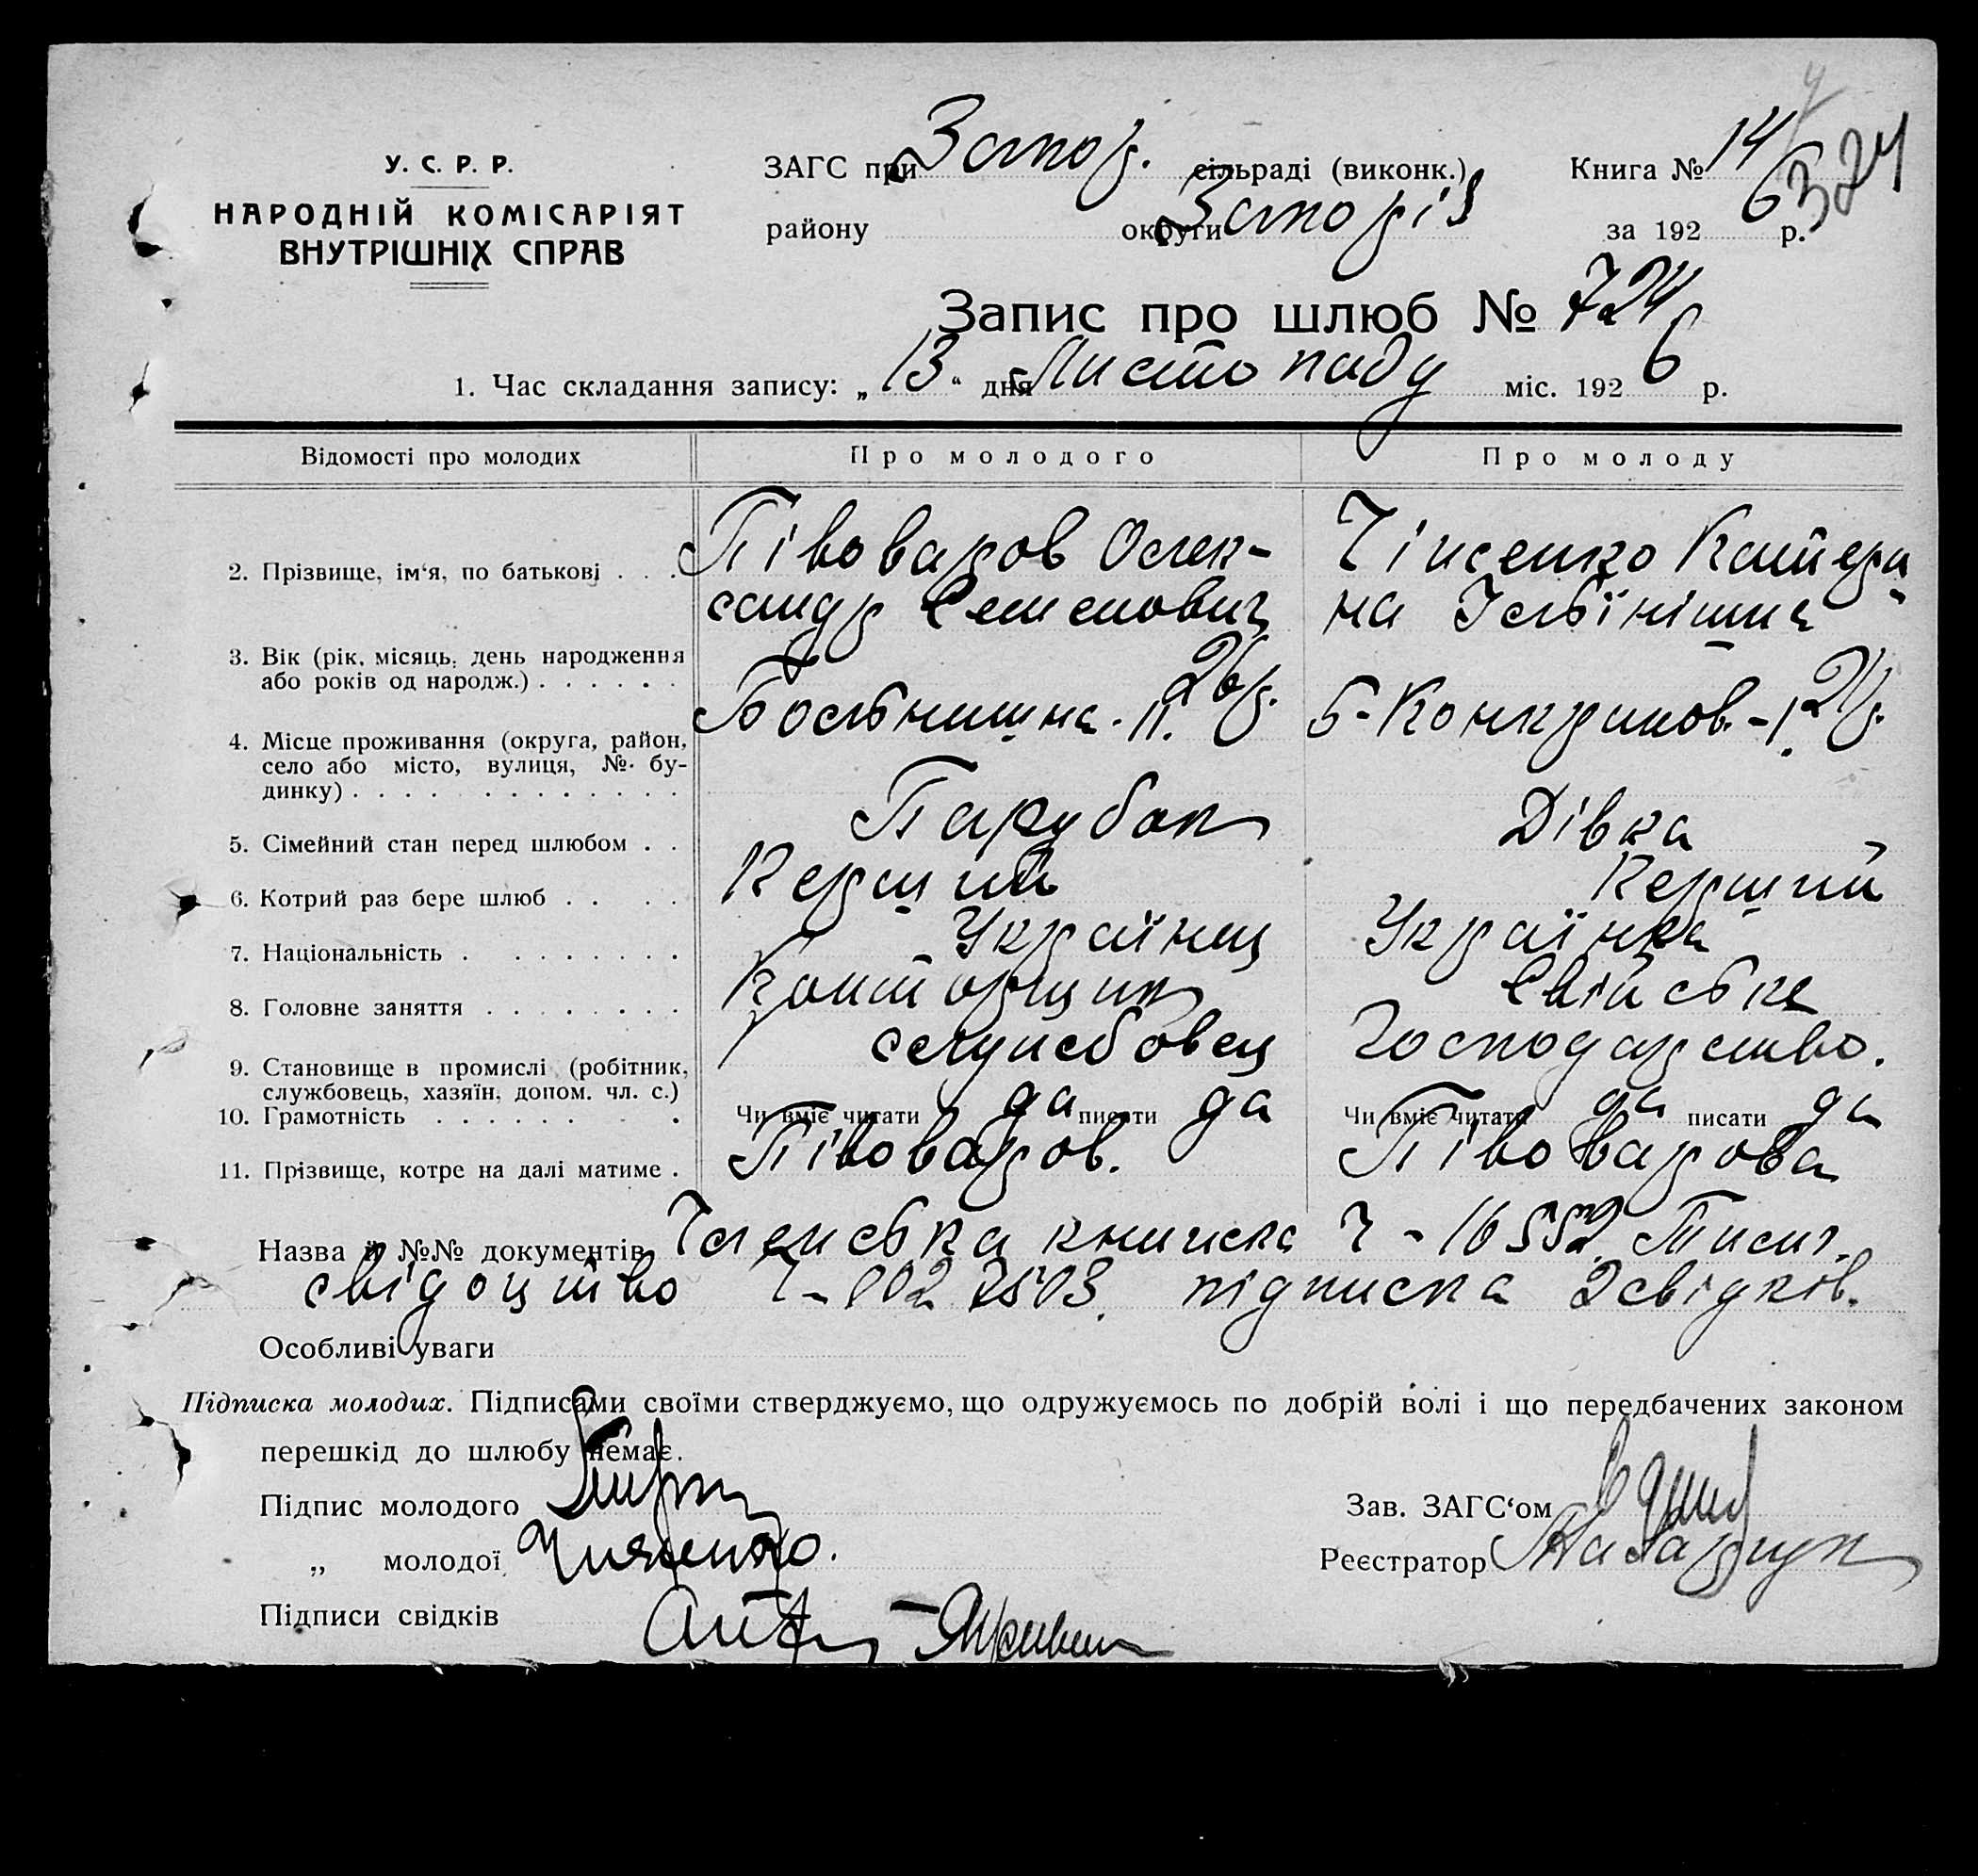 У. С. Р. Р.
НАРОДНІЙ КОМІСАРІЯТ
ВНУТРІШНІХ СПРАВ
ЗАГС при Запор. сільраді (виконк.)
району округи Запоріз
Книга № 14
за 1926 р.
324
Запис про шлюб № 724
1. Час складання запису: „13“ дня Листопаду міс. 1926 р.
Відомості про молодих Про молодого Про молоду
2. Прізвище, ім‘я, по батькові . . . Півоваров Олек-сандр Семенович Катери-на
3. Вік (рік, місяць, день народження або років од народж.) . . . . . . 26 р. 21 р.
4. Місце проживання (округа, район, село або місто, вулиця, №. будинку) . . . . Больнишна. п.
5. Сімейний стан перед шлюбом . . Парубок Дівка
6. Котрий раз бере шлюб . . . . Перший Перший
7. Національність . . . . . . . . Українец Українка
8. Головне заняття . . . . . . . . Конторщик Свійське
9. Становище в промислі (робітник, службовець, хазяїн, допом. чл. с.) служебовец Господарство.
10. Грамотність . . . . . . . . Чи вміє читати да писати да Чи вміє читати да писати да
11. Прізвище, котре на далі матиме . Півоваров. Півоварова
Назва й №№ документів Членська книжка Ч - 16552 Тисяч.
свідоцтво підписка 2 свідків.
Особливі уваги
Підписка молодих. Підписами своїми стверджуємо, що одружуємось по добрій волі і що передбачених законом
перешкід до шлюбу немає.
Підпис молодого
„ молодої
Підписи свідків
Зав. ЗАГС‘ом
Реєстратор